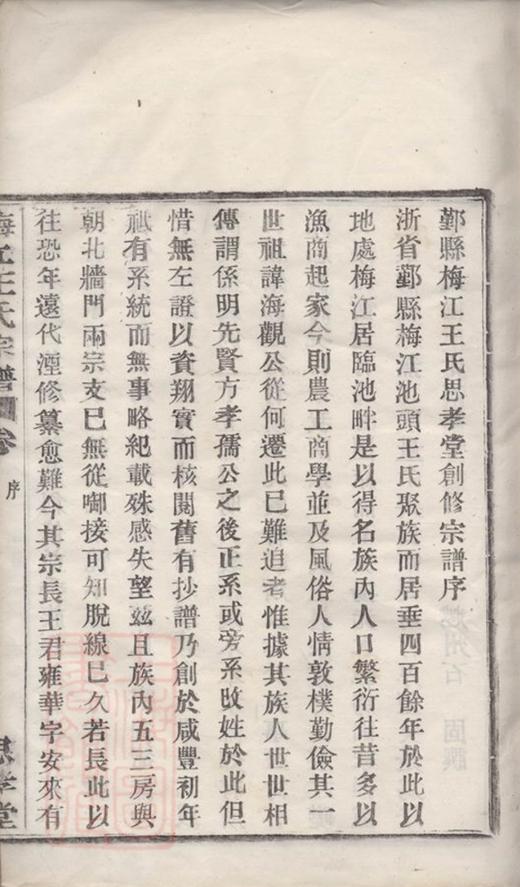 鄞縣梅江王氏思孝堂創修宗譜序
浙省鄞縣梅江池頭王氏聚族而居垂四百餘年於此以
地處梅江居臨池畔是以得名族內人口繁衍往昔多以
漁商起家今則農工商學並及風俗人情敦樸勤儉其一
世祖諱海觀公從何遷此已難追考惟據其族人世世相
傳謂係明先賢方孝孺公之後正系或旁系改姓於此但
惜無左證以資翔實而核閱舊有抄譜乃創於咸豐初年
祇有系統而無事略紀載殊感失望茲且族內五三房與
朝北牆門兩宗支已無從啣接可知脫線已久若長此以
往恐年遠代湮修纂愈難今其宗長王君雍華字安來有
梅江王氏宗譜 卷 序 思孝堂